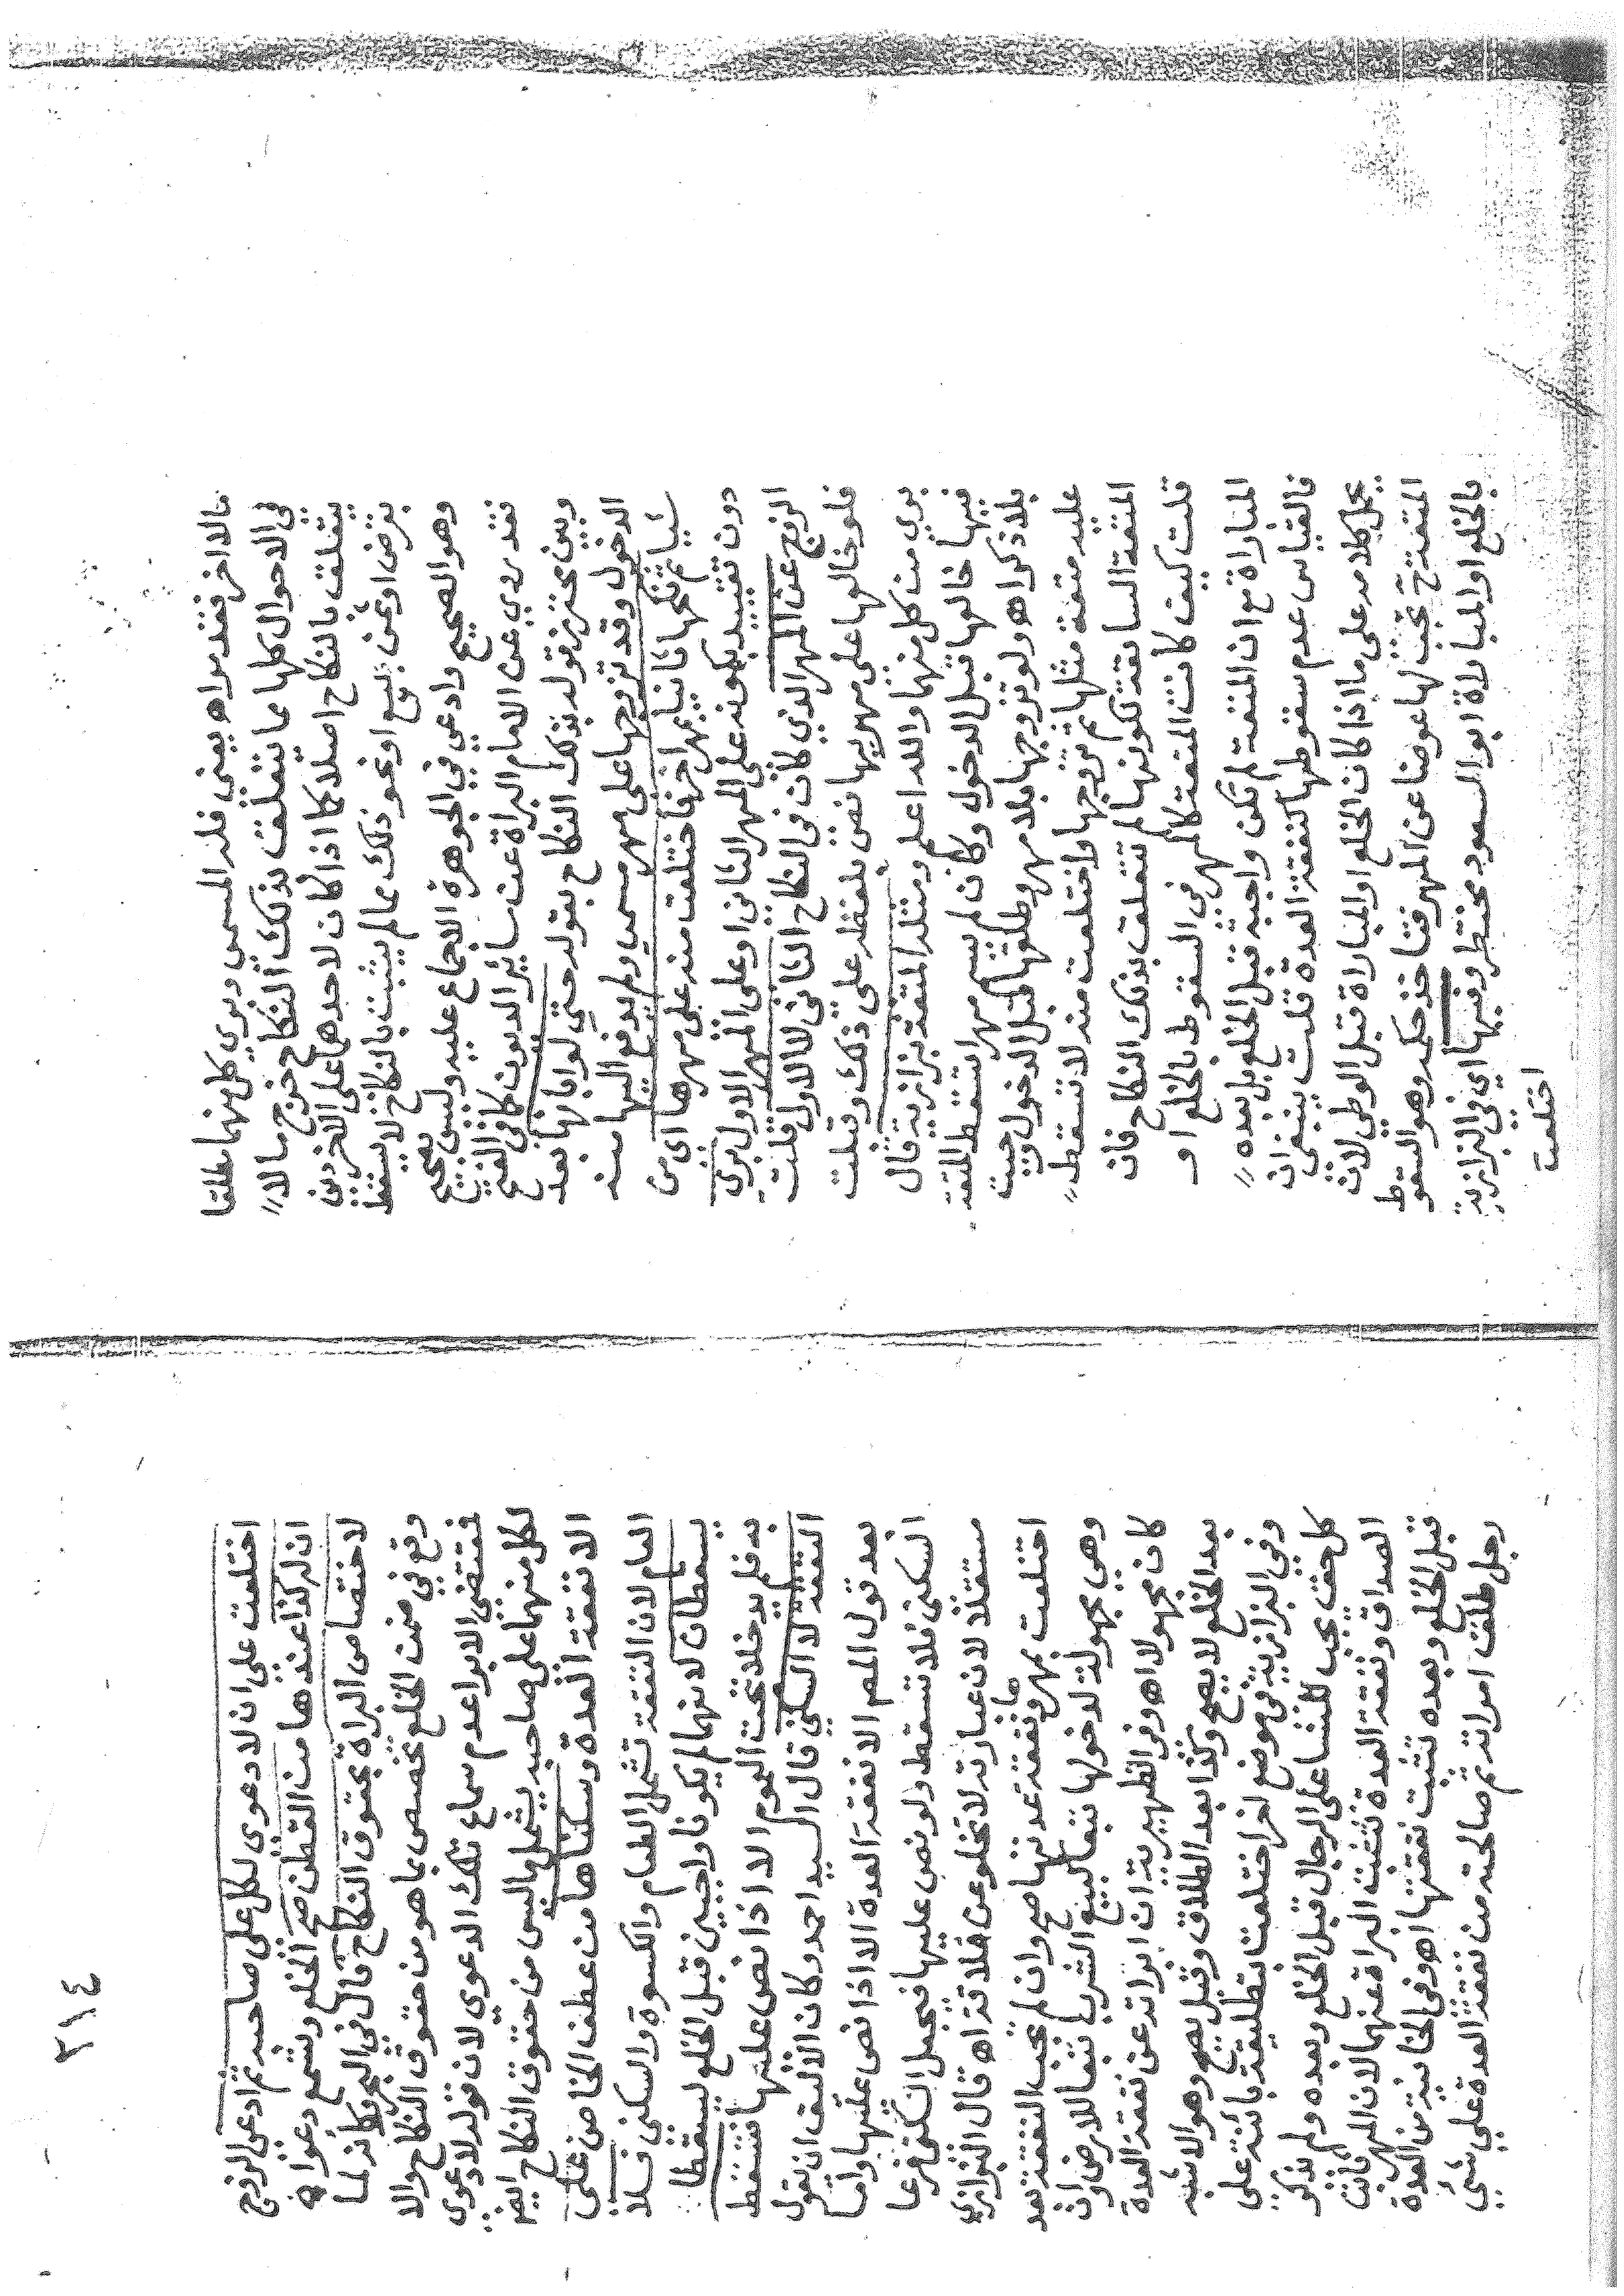 مالا اخر فقد مراه يعنى فلذ المسمى ويبرى كل منهما مطلقا
فى الاحوال كلها مما يتعلق بذلك النكاح خرج ما لا
يتعلق بالنكاح اصلا كما اذا كان لاحدهما على الاخر دين
بقرض او ثمن بيع او نحو ذلك مما لم يثبت بالنكاح لا يسقط
وهو الصحيح وادعى في الجوهرة الاجماع عليه وليس بصحيح
فقد روي عن الامام البراة عن سائر الديون كما في الفتح
وبين محترز قوله بذلك النكاح بقوله حتى لو ابانها بعد
الدخول وقد تزوجها على مهر مسمى ولم يدفع اليها منه
شيا ثم نكحها ثانيا بمهر اخر فاختلعت منه على مهرها اى من
دون تقييد بكونه على المهر الثانى او على المهر الاول برئ
الزوج عن المهر الذي كان فى النكاح الثانى لا الاول قلت
فلو خالعها على مهريها نص بلفظه على ذلك وقبلت
برى من كل منهما والله اعلم ومثله المتعة بزازية قال
فيها خالعها قبل الدخول وكان لم يسم مهرا تسقط المتعة
بلا ذكر اهـ ولو تزوجها بلا مهر وطلقها قبل الدخول وجبت
عليه متعة مثلها ثم تزوجها واختلعت منه لا تسقط
المتعة السابقة لكونها لم تتعلق بذلك النكاح فان
قلت كيف كانت المتعة كالمهر فى السقوط بالخلع او
المباراة مع ان المتعة لم تكن واجبة قبل الخلع بل بعده
فالقياس عدم سقوطها كنفقة العدة قلت ينبغى ان
يحمل كلامه على ما اذا كان الخلع او المباراة قبل الوطى لان
المتعة ح تجب لها عوضا عن المهر فتاخذ حكمه وهو السقوط
بالخلع او المباراة ابو السعود مختطر وفيها اى فى البزازية
اختلعت
٢١٤
اختلعت على ان لا دعوى لكل على صاحبه ثم ادعى الزوج
ان له كذا عندها من القطن صح الخلع وتسمع دعواه
لاختصاص البراة بحقوق النكاح قال فى البحر وكأنه لما
وقع في ضمن الخلع تخصص بما هو من حقوق النكاح والا
فمقتضى الابرا عدم سماع تلك الدعوي لان قوله لا دعوى
لكل منهما على صاحبه يشمل ما ليس من حقوق النكاح ايضا
الا نفقة العدة وسكناها من عطف الخاص على
العام لان النفقة تشمل الطعام والكسوة والسكنى فلا
يسقطان لانهما لم يكونا واجبين قبل الخلع ليسقطا
به فلم يدخلا تحت العموم الا اذا نص عليها فتسقط
النفقة لا السكنى قال السيد احمد وكان الاليق ان يقول
بعد قول المص الا نفقة العدة الا اذا نص عليها واما
السكنى فلا تسقط ولو نص عليها فيجعل السكنى فرعا
مستقلا لان عبارته لا تخلو عن قلاقة اهـ قال فى البزازى
اختلعت بمهرها ونفقة عدتها صح وان لم تجب النفقة بعد
وهي مجهولة لدخولها تبعا كبيع الشرب تبعا للارض وان
كان مجهولا اهـ وفى الظهيرية ان ابراته عن نفقة العدة
بعد الخلع لا يصح وكذا بعد الطلاق وقيل يصح وهو الاشبه
وفي البزازية فى موضع اخر اختلعت بتطليقة بائنة على
كل حق يجب للنسا على الرجال قبل الخلع وبعده ولم يذكر
الصداق ونفقة العدة تثبت البراة عنهما لان المهر ثابت
قبل الخلع وبعده تثبت نفقتها اهـ وفى الخانية من العدة
رجل طلق امراته ثم صالحته من نفقة العدة على شئ